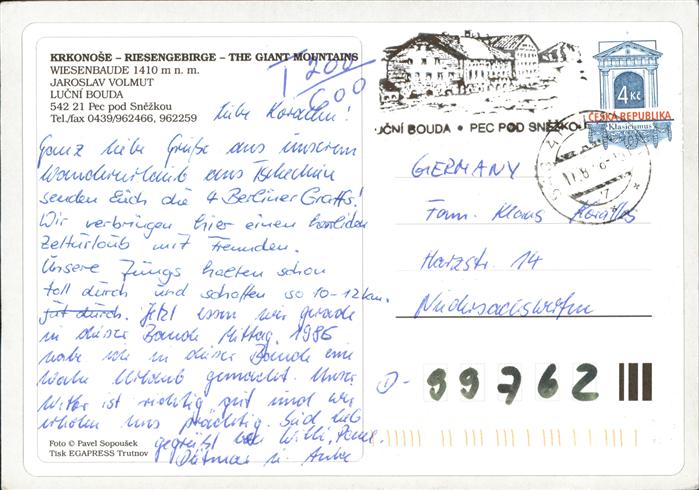 KRKONOŠE – RIESENGEBIRGE – THE GIANT MOUNTAINS
WIESENBAUDE 1410 m n. m.
JAROSLAV VOLMUT
LUČNÍ BOUDA
542 21 Pec pod Sněžkou
Tel./fax 0439/962466, 962259
T 200
600
Liebe
Ganz liebe Grüße aus unserem
Wanderurlaub aus Tschechien
senden Euch die 4 Berliner Graffs!
Wir verbringen hier einen herrlichen
Zelturlaub mit Freunden.
Unsere Jungs halten schon
toll durch und schaffen so 10-12 km.
gut durch. Jetzt essen wir gerade
in dieser Baude Mittag. 1986
habe ich in dieser Baude eine
Woche Urlaub gemacht. Unser
Wetter ist richtig gut und wir
erholen uns prächtig. Seid lieb
gegrüßt von Willi,
Dietmar u. Anke
Foto © Pavel Sopoušek
Tisk EGAPRESS Trutnov
LUČNÍ BOUDA • PEC POD SNĚŽKOU
4 Kč
ČESKÁ REPUBLIKA
Klasicismus
GERMANY
Fam. Klaus
Harzstr. 14
Niedersachswerfen
D- 99762